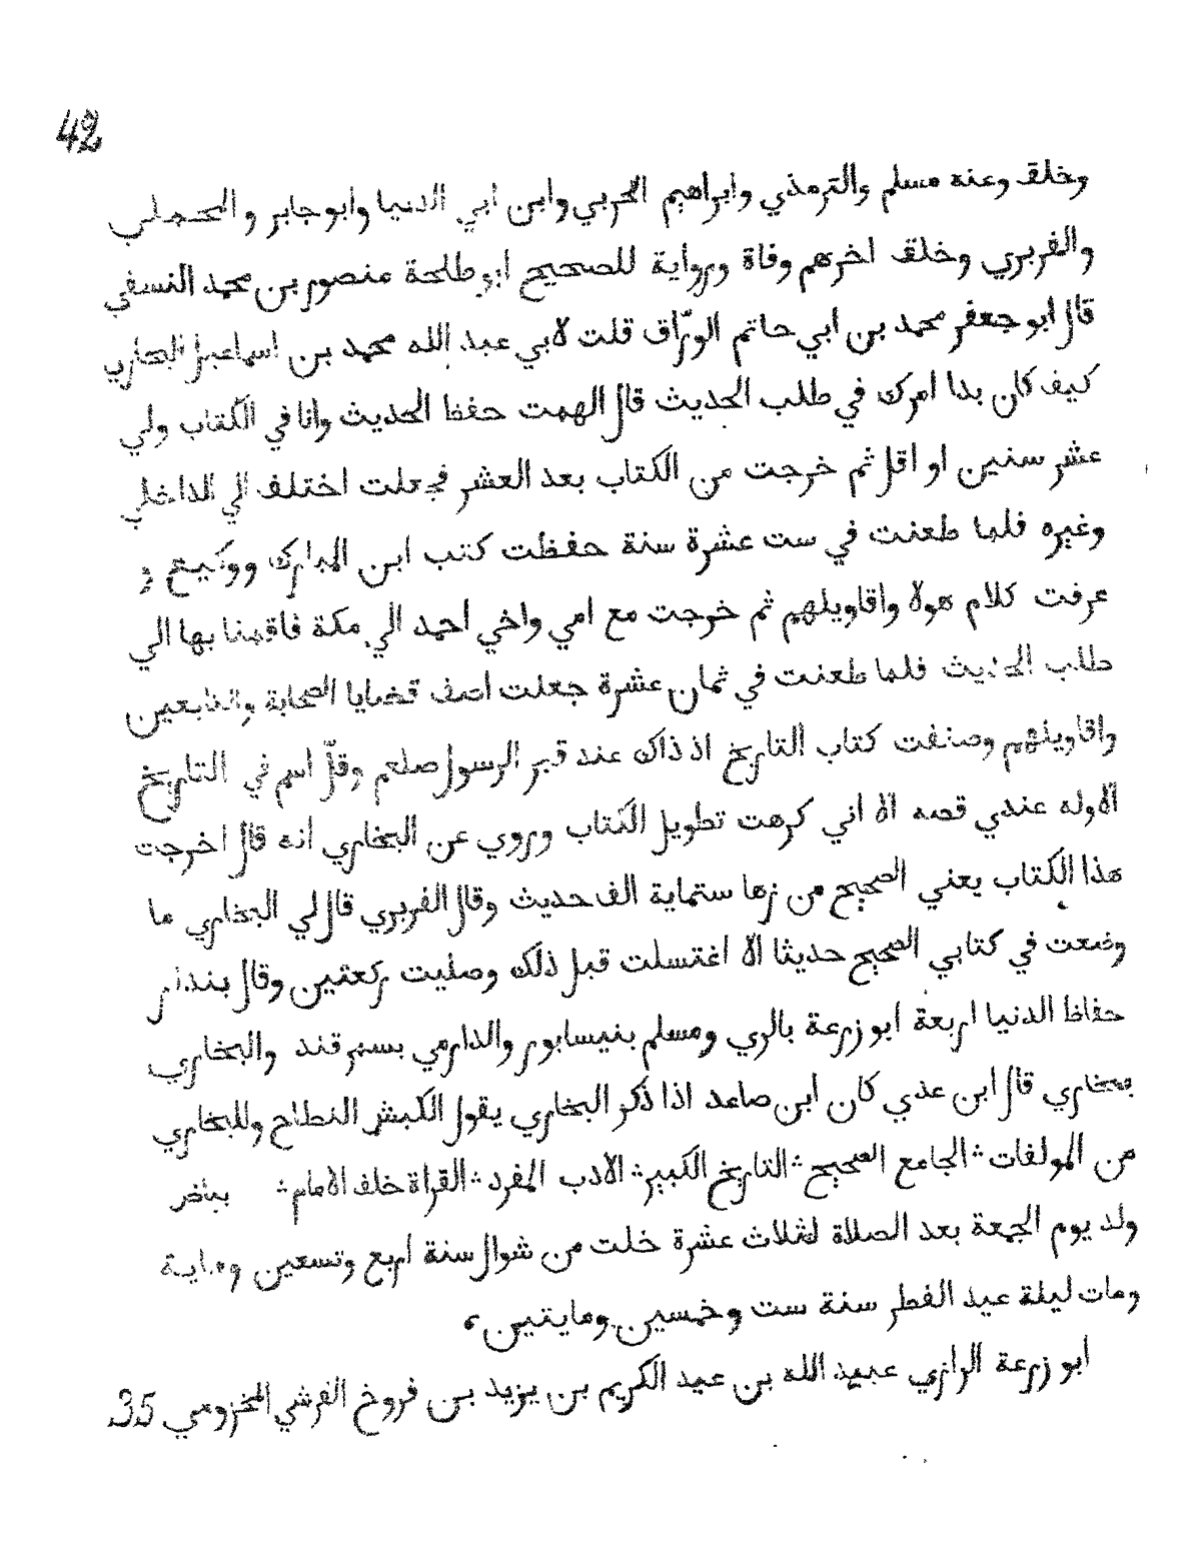 42
وخلق وعنه مسلم والترمذي وابراهيم الحربي وابن ابي الدنيا وابو جابر و
والفربري وخلق اخرهم وفاة ورواية للصحيح ابو طلحة منصور بن محمد النسفي
قال ابو جعفر محمد بن ابي حاتم الورّاق قلت لابي عبد الله محمد بن اسماعيل البخاري
كيف كان بدا امرك في طلب الحديث قال الهمت حفظ الحديث وانا في الكتاب ولي
عشر سنين او اقل ثم خرجت من الكتاب بعد العشر فجعلت اختلف الي الداخلي
وغيره فلما طعنت في ست عشرة سنة حفظت كتب ابن المبارك ووكيع و
عرفت كلام هولا واقاويلهم ثم خرجت مع امي واخي احمد الي مكة فاقمنا بها الي
طلب الحديث فلما طعنت في ثمان عشرة جعلت اصنف قضايا الصحابة والتابعين
واقاويلهم وصنفت كتاب التاريخ اذ ذاك عند قبر الرسول صلعم وقلّ اسم في التاريخ
الا وله عندي قصه الا اني كرهت تطويل الكتاب وروي عن البخاري انه قال اخرجت
هذا الكتاب يعني الصحيح من زها ستماية الف حديث وقال الفربري قال لي البخاري ما
وضعت في كتابي الصحيح حديثا الا اغتسلت قبل ذلك وصليت ركعتين وقال بندار
حفاظ الدنيا اربعة ابو زرعة بالري ومسلم بنيسابور والدارمي بسمرقند والبخاري
ببخاري قال ابن عدي كان ابن صاعد اذا ذكر البخاري يقول الكبش النطاح وللبخاري
من المولفات ؞ الجامع الصحيح ؞ التاريخ الكبير ؞ الادب المفرد ؞ القراة خلف الامام ؞ بياض
ولد يوم الجمعة بعد الصلاة لثلاث عشرة خلت من شوال سنة اربع وتسعين وماية
ومات ليلة عيد الفطر سنة ست وخمسين ومايتين،
ابو زرعة الرازي عبيد الله بن عبد الكريم بن يزيد بن فروخ القرشي المخزومي 35